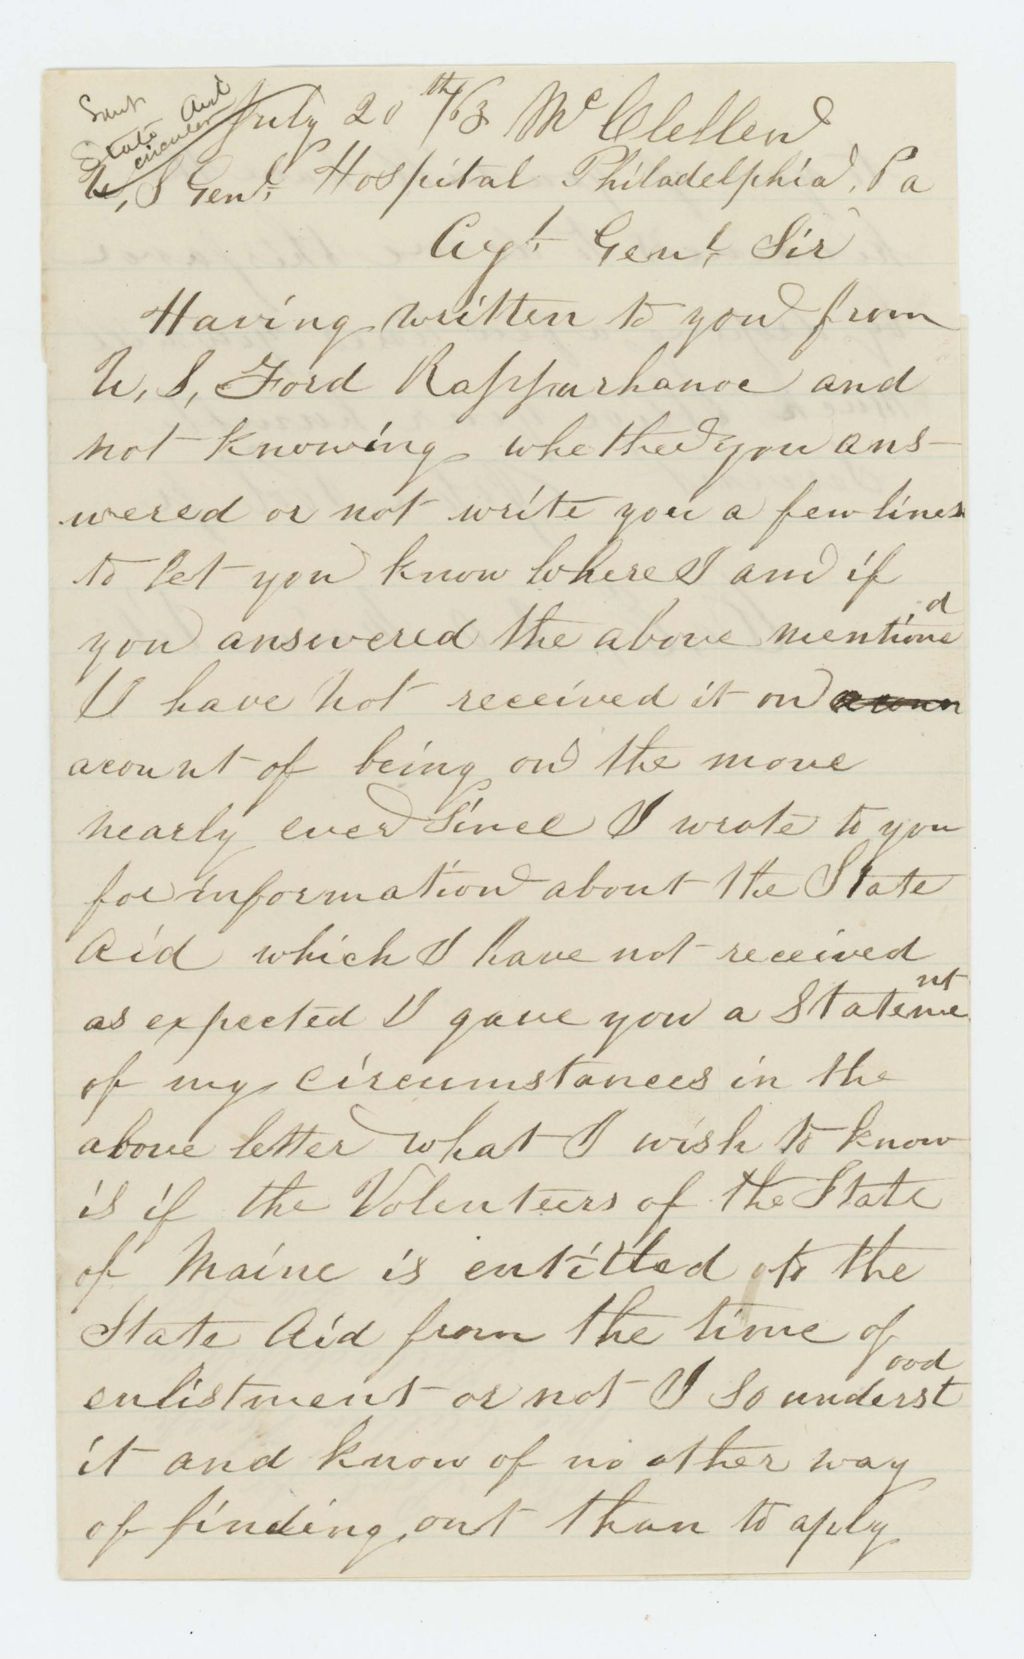 Sent
State Aid
circular
July 20th/63 McClellen
U, S Genl. Hospital Philadelphia, Pa
Agt. Genl. Sir
Having written to you from
U, S, Ford Rappahanoc and
not knowing whether you ans-
wered or not write you a few lines
to let you know where I am if
you answered the above mentioned
I have not received it on
acount of being on the move
nearly ever since I wrote to you
for information about the State
Aid which I have not received
as expected I gave you a Statement
of my circumstances in the
above letter what I wish to know
is if the Volenteers of the State
of Maine is entitled to the
State Aid from the time of
enlistment or not I so understood
it and know of no other way
of finding out than to aply